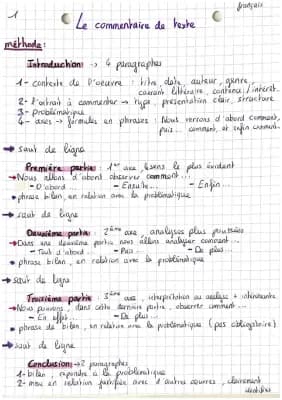 français
1
Le commentaire de texte
méthode:
Introduction: → 4 paragraphes
1 - contexte de l'oeuvre : titre, date, auteur, genre,
courant littéraire, contenu / intérêt.
2 - l'extrait à commenter → type, présentation clair, structure
3 - Problématique
4 - axes → formules en phrases : Nous verrons d'abord comment,
puis... comment, et enfin comment.
→ saut de ligne
Première partie : 1er axe, sens le plus évident
→ Nous allons d'abord observer comment ...
- D'abord ... - Ensuite ... - Enfin ...
• phrase bilan, en relation avec la problématique
→ saut de ligne
Deuxième partie : 2ème axe, analyses plus poussées
→ Dans une deuxième partie nous allons analyser comment ...
- Tout d'abord ... - Puis ... - De plus ...
• phrase bilan, en relation avec la problématique
→ saut de ligne
Troisième partie : 3ème axe, interprétation ou analyse + intéressante
→ Nous pouvons, dans cette dernière partie, observer comment ...
- En effet ... - De plus ...
• phrase de bilan, en relation avec la problématique (pas obligatoire)
→ saut de ligne
Conclusion: → 2 paragraphes
1 - bilan, répondre à la problématique
2 - mise en relation justifiée avec 1 autre oeuvre, clairement
identifiée